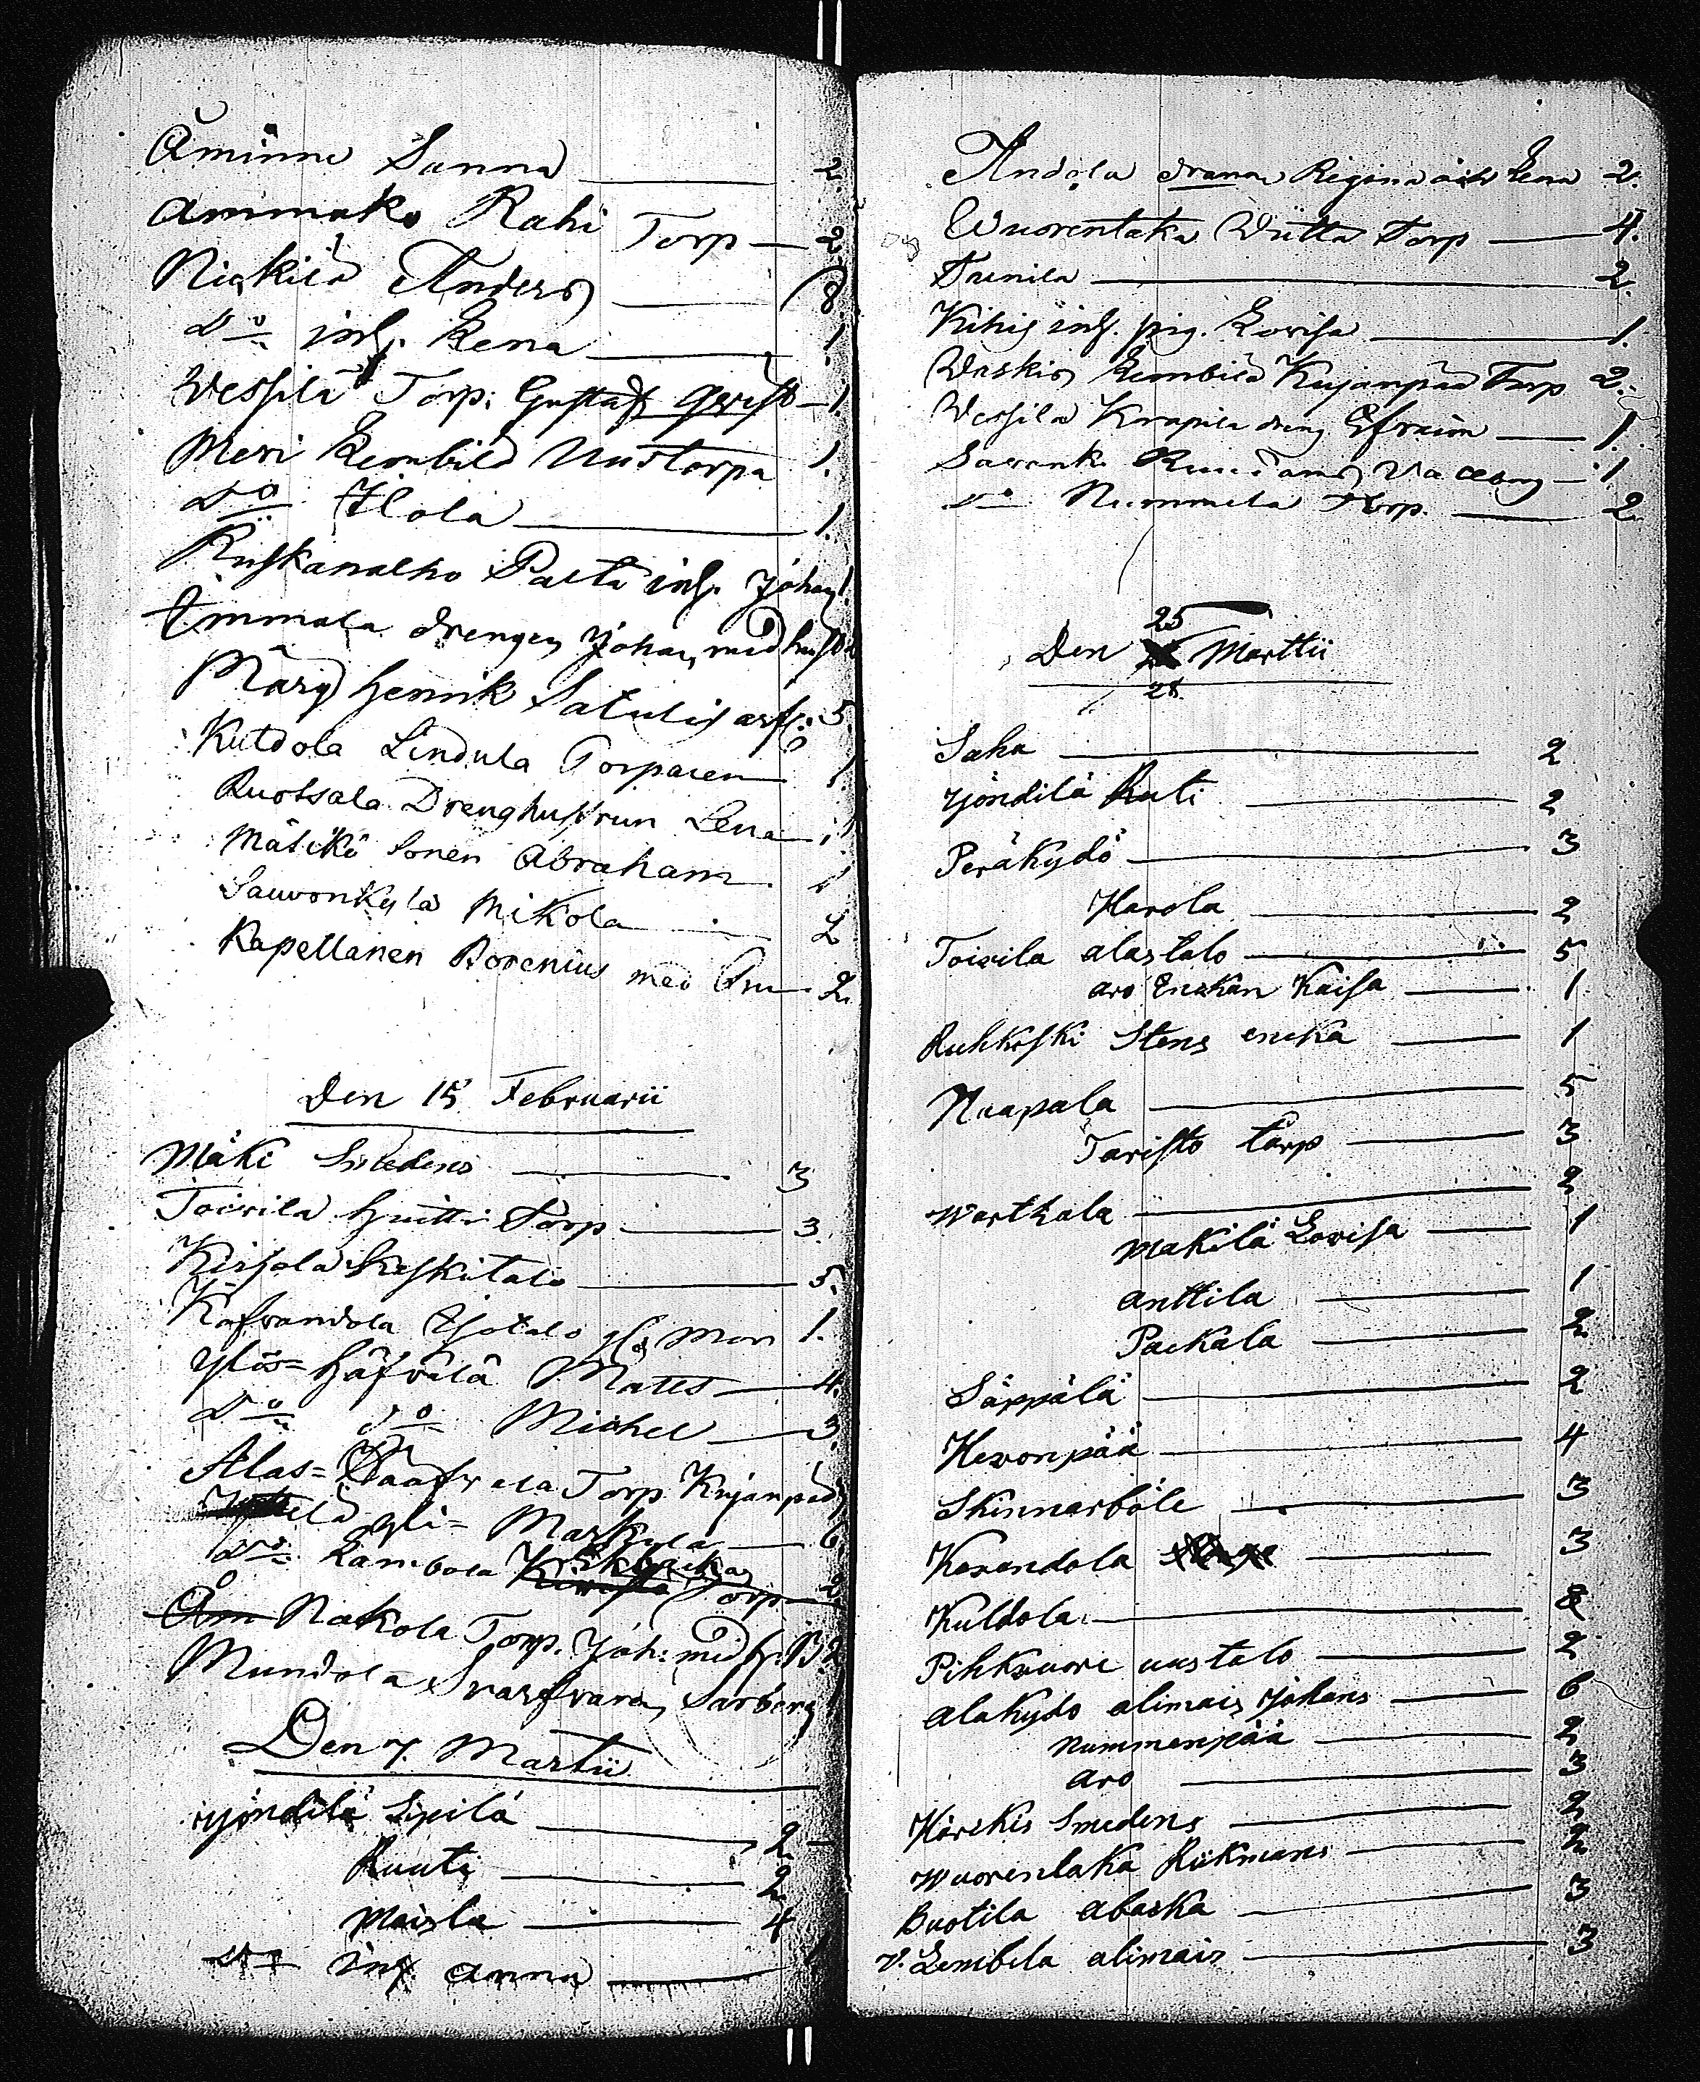 Åminne Sanna 2.
Ammako Rahi Torp 2
Nickilä Anders 8
Do inh. Lena 1
Wessilä Torp: Gustaf Qvist 1.
Meri Lembilä Uustorpa 1.
Do Ilola 1.
Ruskanalho Palta inh. Johan 1.
Immala drengen Johan med hust
Märy Henrik 5.
Kuldola Lindula Torparen 1.
Ruotsala Drenghustrun Lena 1
Mälikö Sonen Abraham 1
Sauvonkylä Mikola 2
Kapellanen Borenius med Fru 2.
Den 15 Februarii
Mäki Smedens 3
Toivila Huitti Torp 3.
Kirjola Keskitalo 5.
Kåfvandola Isotalo gl. Mor 1.
Ylös=Håfvälä Matts 4.
Do do Michel 3.
Alas=Haafvela Torp Kujanpää
yli= Markula 6.
Do Lambola Torp 2
Nakola Torp. Joh: med h: B 2
Mundola Svarfvaren Sarberg
Den 7. Martii
Rjöndilä Sipilä 2
Ruuti 2
Maisla 4
Do inh Anna
Andola drana Regina och Lena 2.
Wuorentaka Wütta Torp 4.
Trenila 2.
Kihis inh. pig. Lovisa 1.
Waskio Lembilä Kujanpää Torp 2.
Vessila Krapila dreng Efraim 1.
Sawenk. 1
Do Nummela Torp. 2
25
Den Marttii
28
Saha 2
Rjöndilä Ruti 2
Peräkydö 3
Harola 2
Toivila alastalo 5
aro Enckan Kaisa 1
Ruhkoski Stens encka 1
Naapala 5
Taristo torp 3
Wartkala 2
Makilä Lovisa 1
Anttila 1
Packala 2
Säppälä 2
Hevonpää 4
Skinnarböle 3
Kevendola 3
Kuldola 8
Pihkvuore uustalo 2
Alakydö alimais Johans 6
Nummenpää 2
aro 3
Härckis Smedens 2
Wuorenlaka Rükmans 2
Buotila abacka 3
v. Lembila alimais 3